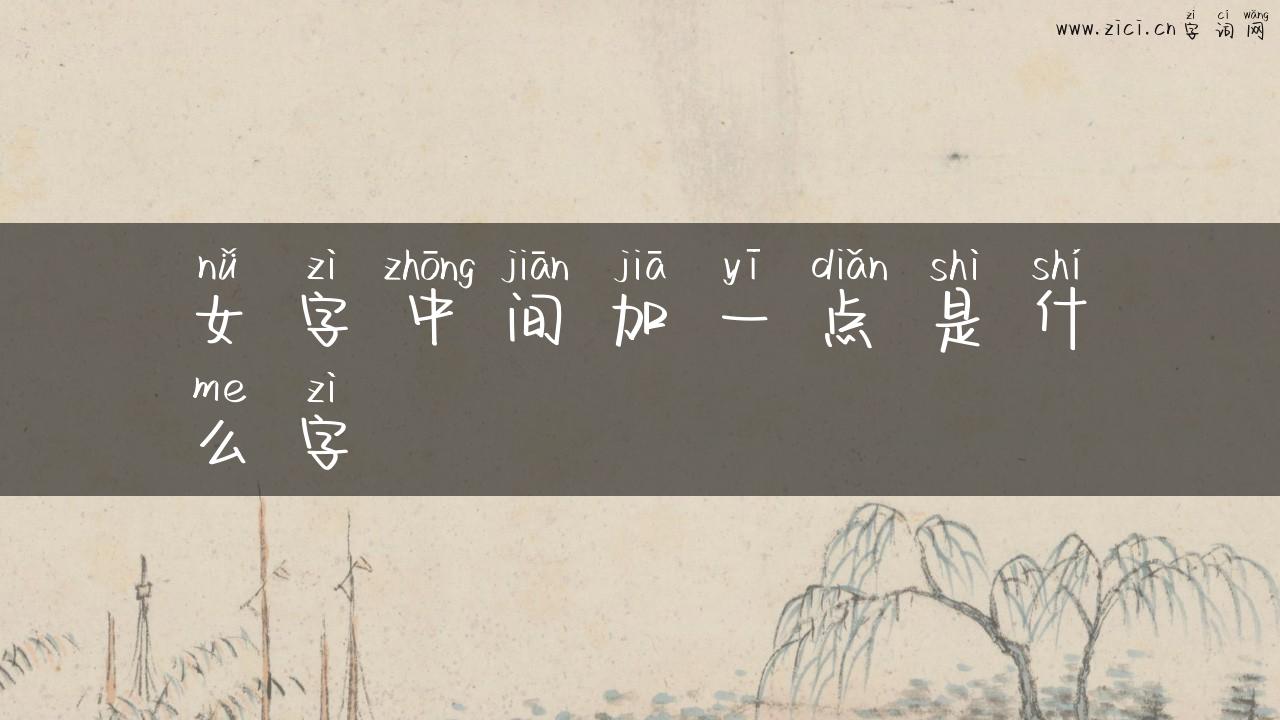 zì cí wǎng
www.zici.cn 字词网
nǚ zì zhōng jiān jiā yī diǎn shì shí
女字中间加一点是什
me zì
么字